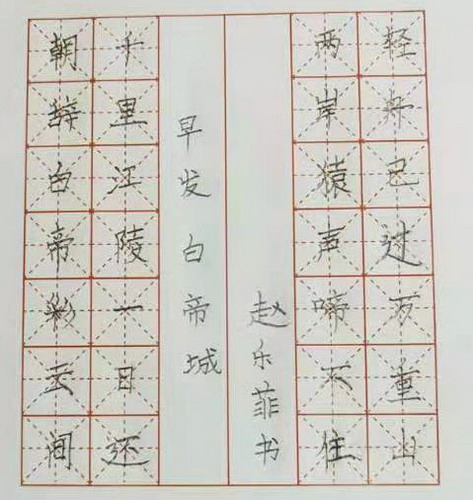 朝辞白帝彩云间
千里江陵一日还
早发白帝城
赵乐菲书
两岸猿声啼不住
轻舟已过万重山